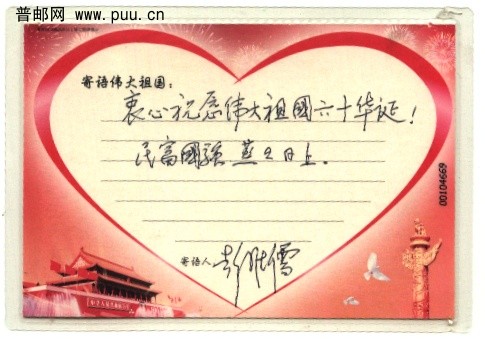 普邮网 www.puu.cn
寄语伟大祖国：
衷心祝愿伟大祖國六十华诞！
民富國强 蒸蒸日上.
00104669
寄语人